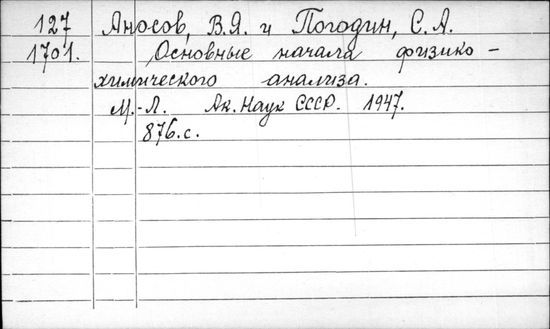 127 Аносов, В.Я. и Погодин, С.А.
1701. Основные начала физико-
химического анализа.
М.-Л. Ак. Наук СССР. 1947.
876.с.